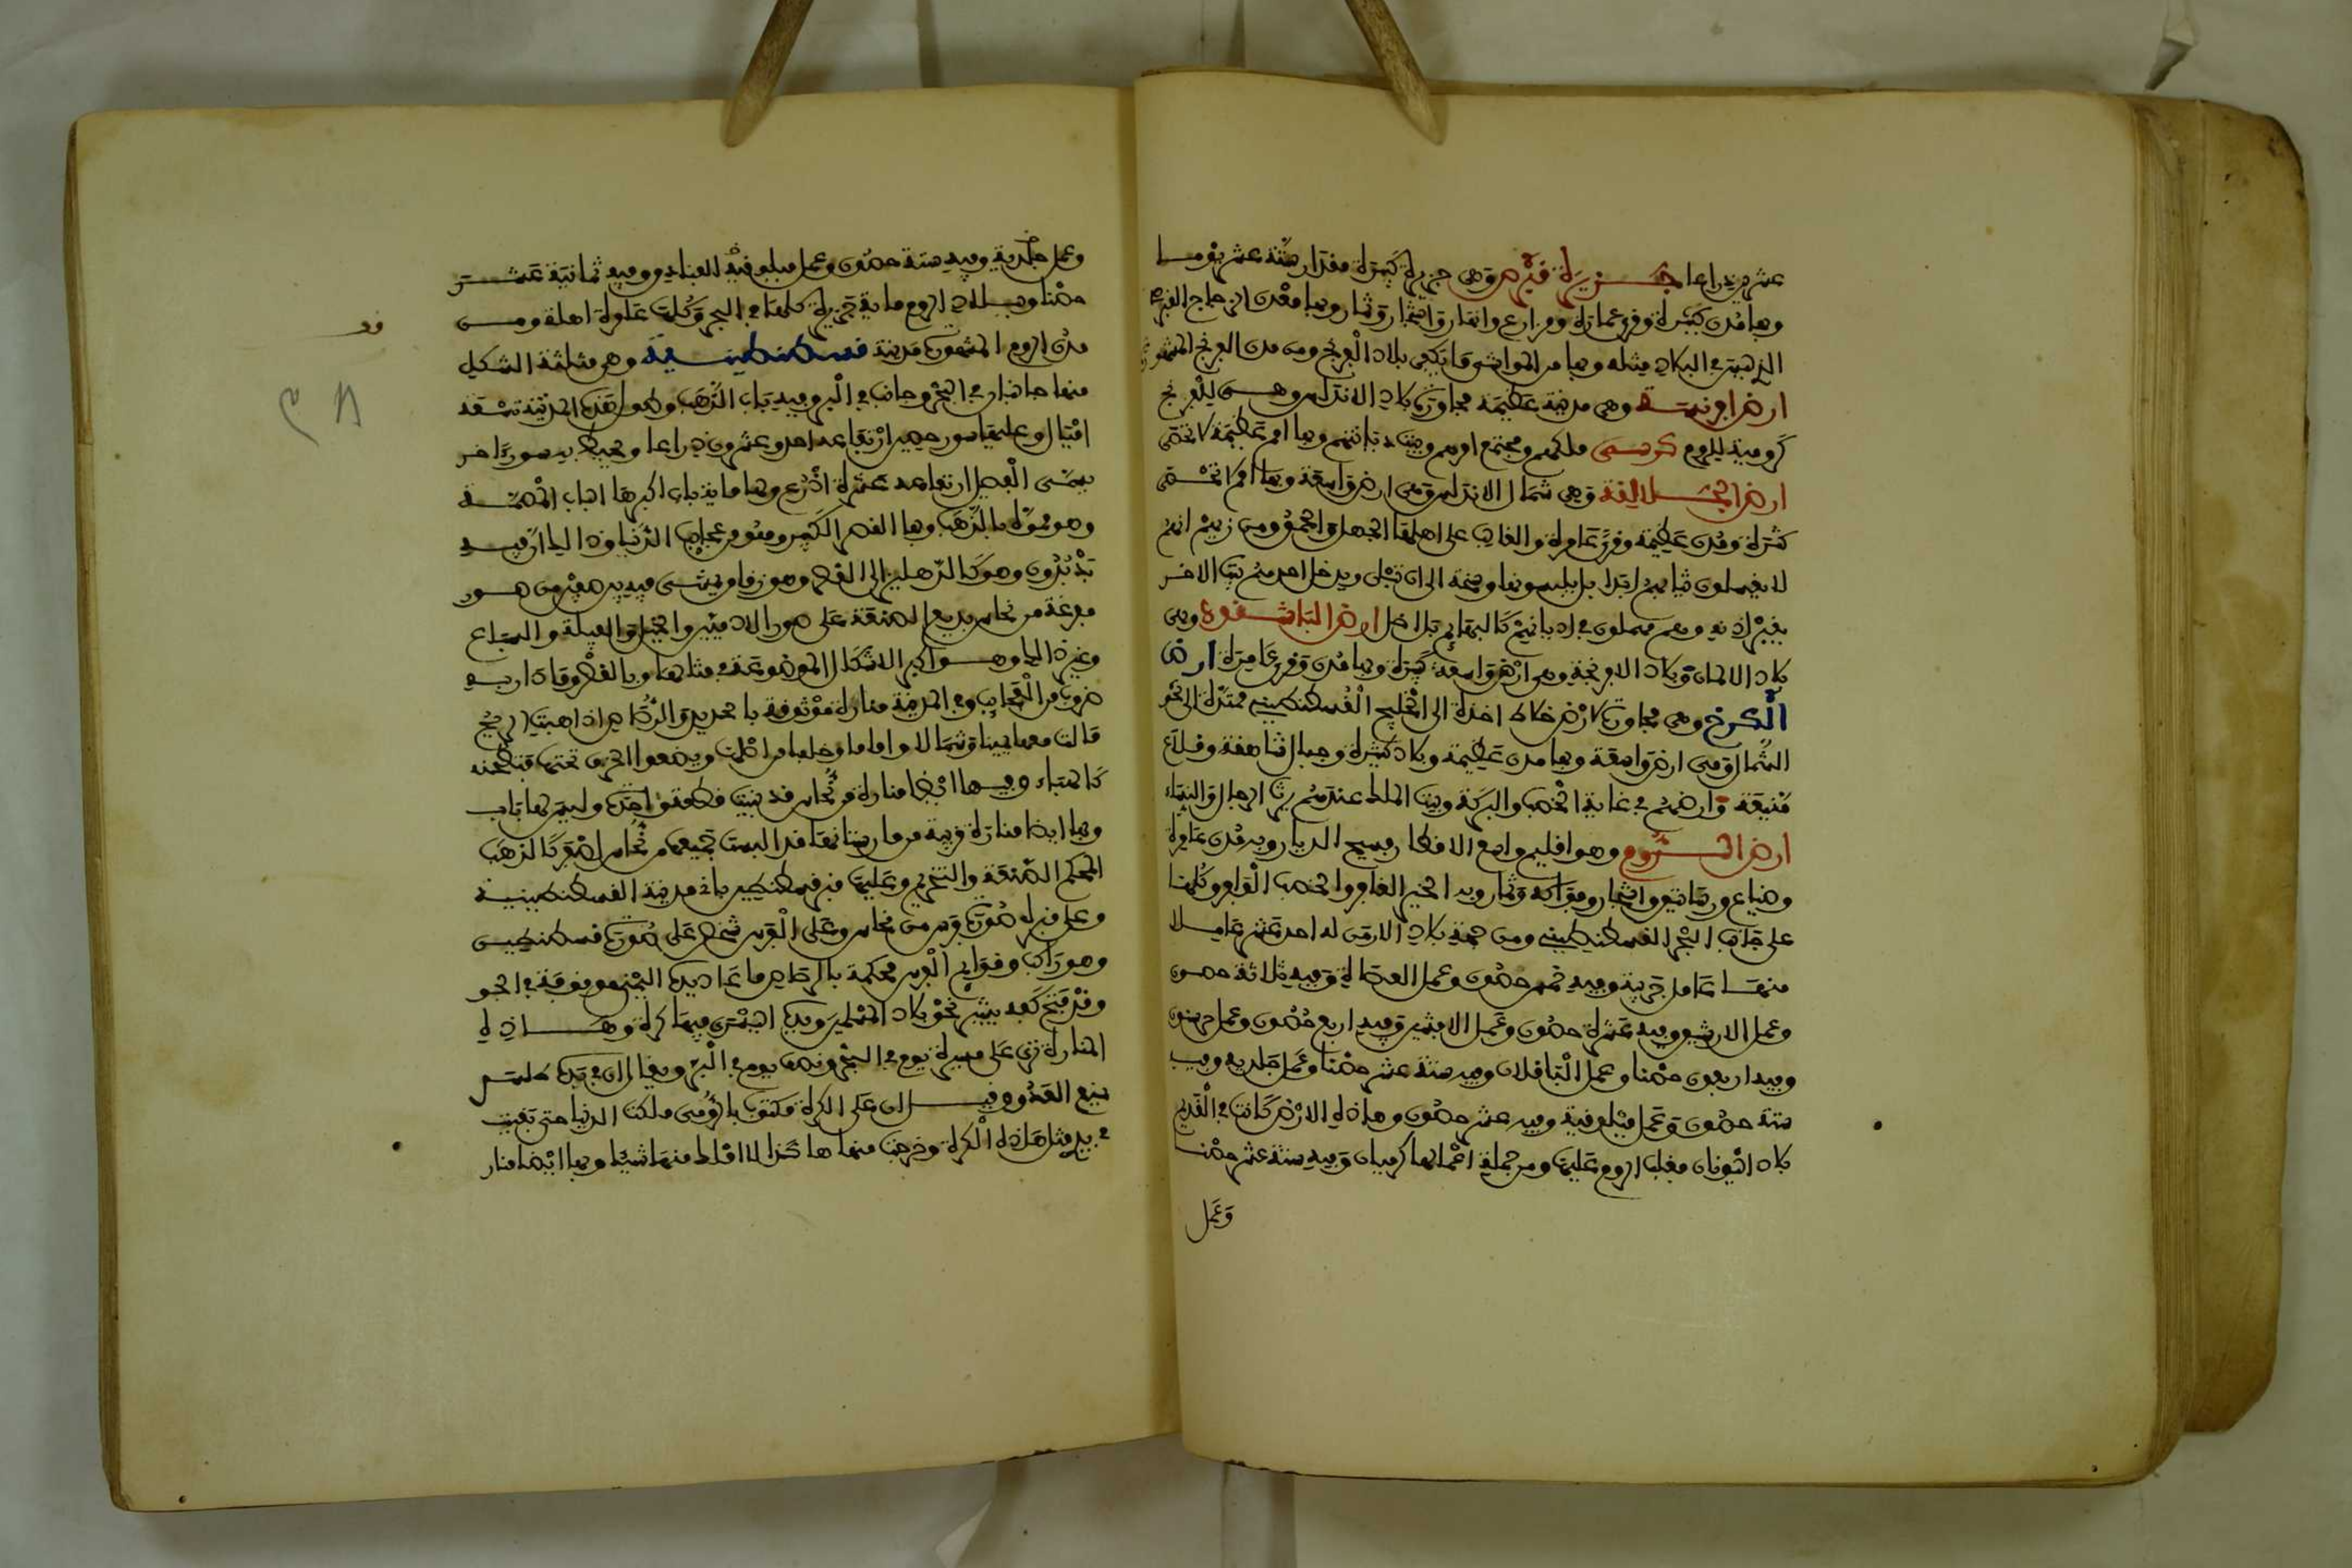 عشرين ذراعا جزيرة قبرص وهي جزيرة كبيرة مقدار ستة عشر يوما
وبها مدن كثيرة وقرى عمارة ومزارع وانهار واشجار وثمار وبها معدن الزاج القبرصي
الذي ليس في البلاد مثله وبها من المواشي ما يكفي بلاد الافرنج ومن مدن الافرنج المشهورة
ارض افرنسة وهي مدينة عظيمة مجاورة بلاد الاندلس وهي للافرنج
كرومية للروم كرسي ملكهم ومجتمع امرهم وبيت ديانتهم وبها امم عظيمة لا تحصى
ارض الجلالقة وهي شمال الاندلس وهي ارض واسعة وبها امم لا تحصى
كثرة ومدن عظيمة وقرى عامرة والغالب على اهلها الجهل والحمق ومن زيهم انهم
لا يغسلون ثيابهم ابدا بل يلبسونها وسخة الى ان تبلى ويدخل احد منهم بيت الاخر
بغير اذنه وهم مهملون في اديانهم كالبهائم بل اضل ارض الباشقرد وهي
بلاد الالمان وبلاد الافرنجة وهي ارض واسعة كبيرة وبها مدن وقرى عامرة ارض
الكرج وهي مجاورة لارض خلاط اخذة الى الخليج القسطنطيني ممتدة الى نحو
الشمال وهي ارض واسعة وبها مدن عظيمة وبلاد كثيرة وجبال شاهقة وقلاع
منيعة وارضهم في غاية الخصب والبركة وبيت الملك عندهم يرثه الرجال والنساء
ارض الروم وهو اقليم واسع الاقطار فسيح الديار وبه مدن عامرة
وضياع ورساتيق واشجار وفواكه وثمار وبه الخير الغامر والخصب الوافر وكلها
على جانب البحر القسطنطيني ومن جهة بلاد الارمن له احد عشر عاملا
منها عامل وفيه خمس حصون وعمل وفيه ثلاثة حصون
وعمل وفيه عشرة حصون وعمل وفيه اربع حصون وعمل
وفيه اربعون حصنا وعمل وفيه ستة عشر حصنا وعمل وفيه
ستة حصون وعمل وفيه عشر حصون وهاذه الارض كانت في القديم
بلاد اليونان فغلب الروم عليها ومن جملة اعمالها وفيه ستة عشر حصنا
وعمل
وعمل وفيه ستة حصون وعمل وفيه ثمانية عشر
حصنا وببلاد الروم ماية جزيرة كلها في البحر وكلها عامرة اهلة ومن
مدن الروم المشهورة مدينة قسطنطينية وهي مثلثة الشكل
منها جانبان في البحر وجانب في البر وفيه باب الذهب وطول هذه المدينة تسعة
اميال وعليها سور حصين ارتفاعه احد وعشرون ذراعا ومحيط به سور اخر
يسمى الفصيل ارتفاعه عشرة اذرع وبها ماية باب اكبرها الباب
وهو مموه بالذهب وبها القصر الكبير وهو من عجايب الدنيا وذالك ان فيه
وهو كالدهليز الى القصر وهو زقاق يمشى فيه بين صفين من صور
مفرغة من نحاس بديع الصنعة على صور الادميين والخيل والفيلة والسباع
وغير ذالك وهو اكبر الاشكال الموضوعة في مثالها وبالقصر وما دار به
ضروب من العجايب وفي المدينة منارة موثوقة بالحديد والرصاص اذا هبت الريح
مالت معها يمينا وشمالا واماما وخلفا من اصلها ويضعوا الخزف تحتها فتطحنه
كالهباء وفيها ايضا منارة من نحاس قد بنيت قطعة واحدة وليس لها باب
وبها ايضا منارة قريبة من مارستانها قد البست جميعها من نحاس اصفر كالذهب
المحكم الصنعة والتخريم وعليها قبر قسطنطين باني مدينة القسطنطينية
وعلى قبره صورة فرس من نحاس وعلى الفرس شخص على صورة قسطنطين
وهو راكب وقوايم الفرس محكمة بالرصاص ما عدا يده اليمنى موقوفة في الجو
وقد فتح كفه يشير نحو بلاد المسلمين ويده اليسرى فيها كرة وهاذه
المنارة ترى على مسيرة يوم في البحر ونصف يوم في البر ويقال ان في يده طلسم
يمنع العدو وقيل ان على الكرة مكتوب بالرومي ملكت الدنيا حتى بقيت
في يدي مثل هاذه الكرة وخرجت منها هاكذا لا املك منها شيئا وبها ايضا منار